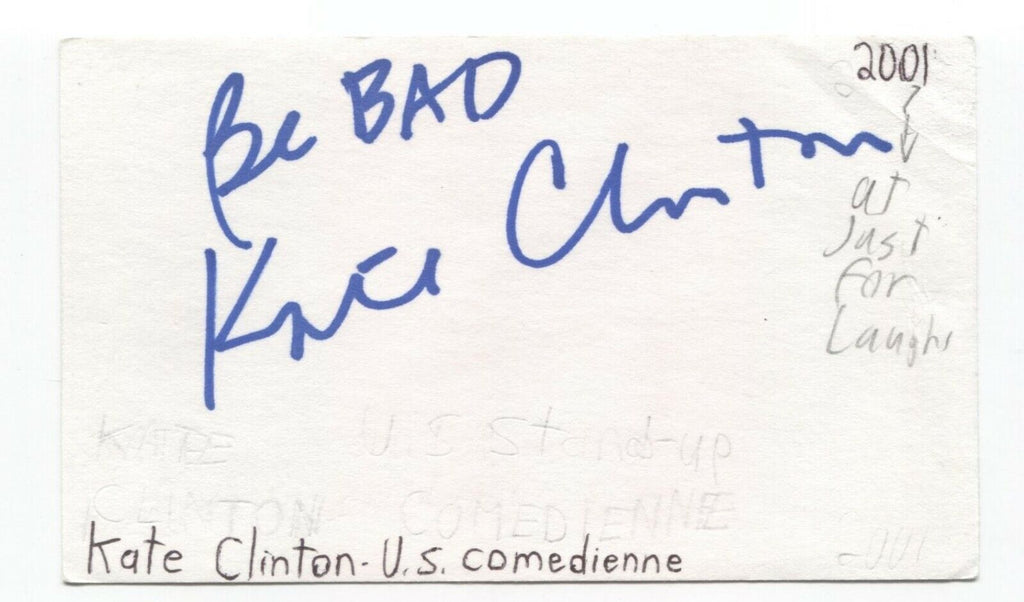 Be BAD
Kate Clinton
2001
at
Just
for
Laughs
KATE U.S Stand-up
CLINTON- COMEDIENNE
2001
Kate Clinton-U.S. comedienne